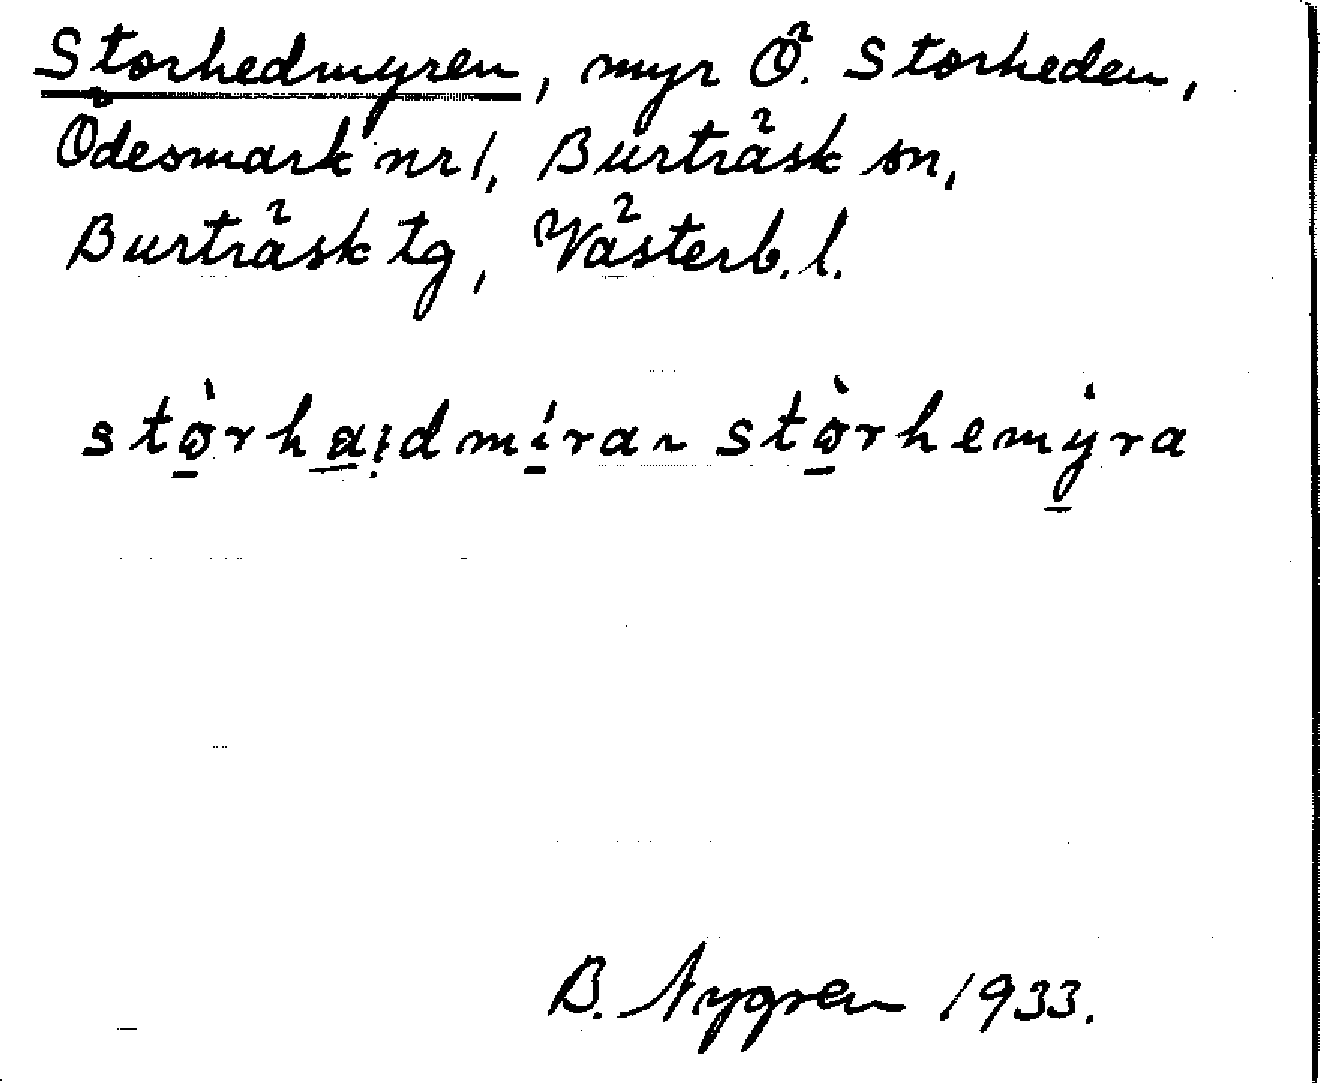 Storhedmyren, myr Ö. Storheden,
Ödesmark nr 1, Burträsk sn,
Burträsk tg, Västerb. l.
stò̱rha̱ịdmí̱ra ~ stò̱rhemý̱ra
B. Nygren 1933.